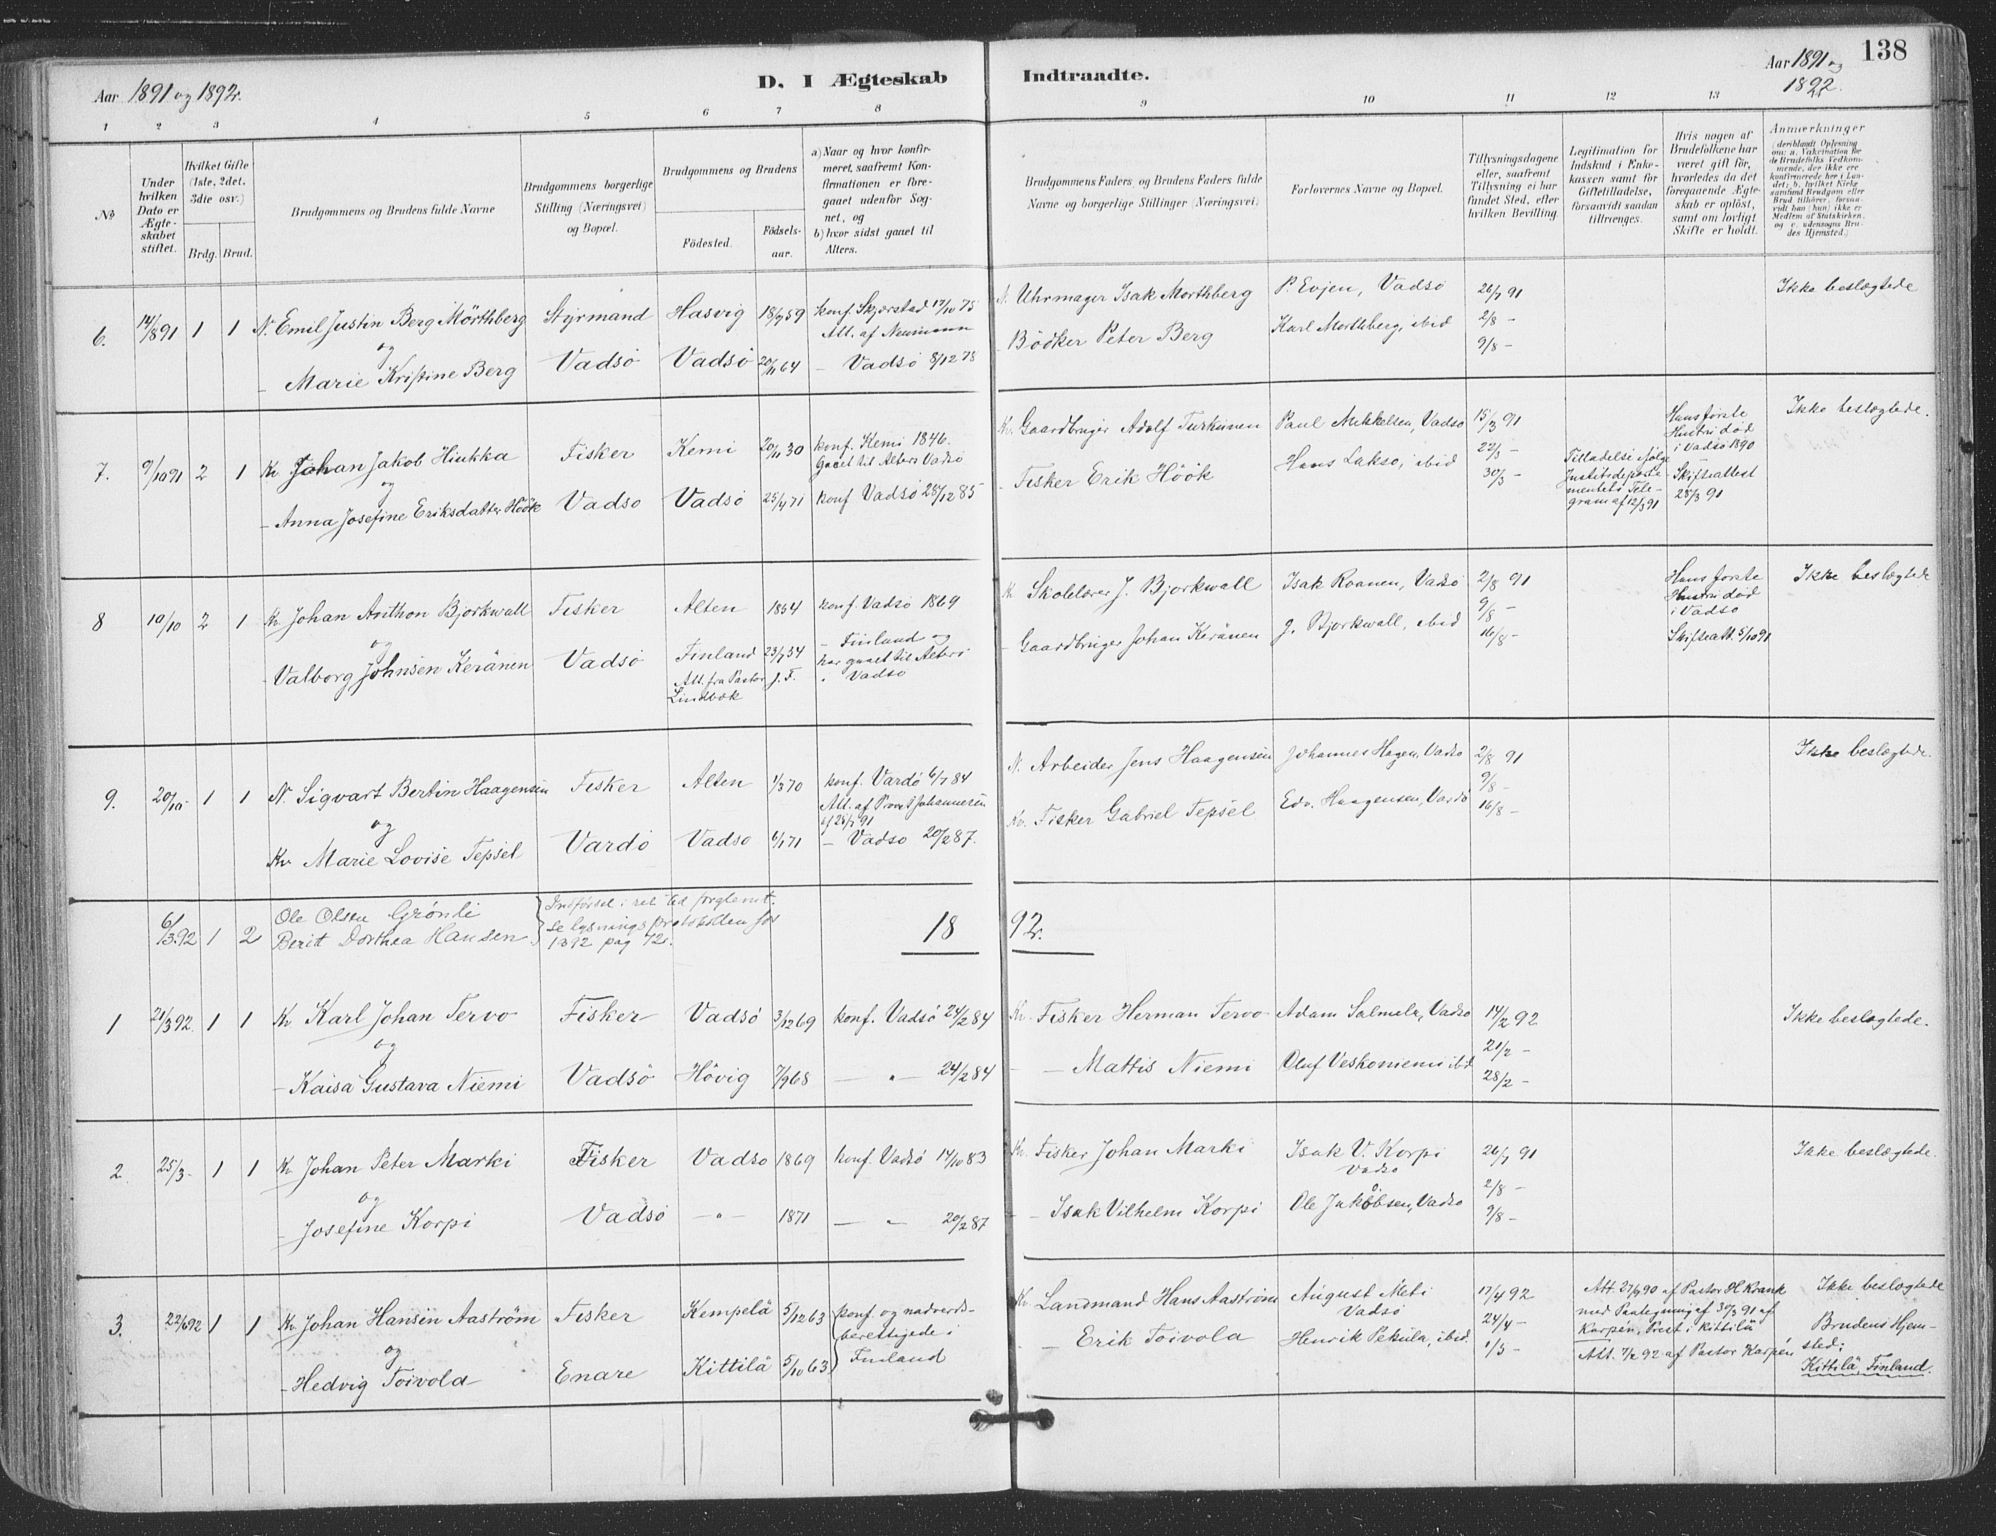 138
Aar 1891 og 1892.
D. I Ægteskab Indtraadte.
Aar 1891 og
1892.
1 2 3 4 5 6 7 8 9 10 11 12 13
No
Under hvilken Dato er Ægteskabet stiftet.
Hvilket Gifte (1ste, 2det, 3die osv.)
Brdg. Brud.
Brudgommens og Brudens fulde Navne
Brudgommens borgerlige Stilling (Næringsvei) og Bopæl.
Brudgommens og Brudens
Födested. Födselsaar.
a) Naar og hvor konfirmeret, saafremt Konfirmationen er foregaaet udenfor Sognet, og
b) hvor sidst gaaet til Alters.
Brudgommens Faders og Brudens Faders fulde Navne og borgerlige Stillinger (Næringsvei)
Forlovernes Navne og Bopæl.
Tillysningsdagene eller, saafremt Tillysning ei har fundet Sted, efter hvilken Bevilling.
Legitimation for Indskud i Enkekassen samt for Giftetilladelse, forsaavidt saadan tiltrænges.
Hvis nogen af Brudefolkene har været gift før, hvorledes da det foregaaende Ægteskab er oplöst, samt om lovligt Skifte er holdt.
Anmærkninger
(deriblandt Oplysning om: a. Vakcination for de Brudefolks Vedkommende, der ikke ere konfirmerede her i Landet; b. hvilket Kirkesamfund Brudgom eller Brud tilhörer, forsaavidt han (hun) ikke er Medlem af Statskirken, og c. udensogns Brudes Hjemsted.)
6. 14/8 91 1 1 N. Emil Justin Berg Mörthberg Styrmand Hasvig 18/9 59 konf. Skjerstad 17/10 75
Att. af Neumann
og
- Marie Kristine Berg Vadsö Vadsö 20/11 64 - Vadsö 8/12 78
N. Uhrmager Isak Morthberg P. Evjen, Vadsö 26/7 91
- Bödker Peter Berg Karl Morthberg, ibid 2/8 -
9/8 -
Ikke beslægtede
7. 9/10 91 2 1 Kv. Johan Jakob Hiukka Fisker Kemi 20/11 30 konf. Kemi 1846.
Gaaet til Alters Vadsö
og
- Anna Josefine Eriksdatter Höök Vadsö Vadsö 25/4 71 konf Vadsö 28/12 85
Kv. Gaardbruger Adolf Turkunen Paul Mikkelsen, Vadsö 15/3 91
- Fisker Erik Höök Hans Lakso, ibid 22/3 -
30/3 -
Tilladelse ifølge Justitsdepartementets Telegram af 12/3 91
Hans første Hustru död i Vadsö 1890
- Skifteattest 28/3 91
Ikke beslægtede.
8 10/10 2 1 Kv. Johan Anthon Bjorkwall Fisker Alten 1854 konf. Vadsö 1869
og
- Valborg Johnsen Keränen Vadsö Finland 23/7 34 - Finland og
har gaaet til Alters
i Vadsö
Att. fra Pastor J. F.
Lindbæk
Kv. Skolelærer J. Bjorkwall Isak Raanen, Vadsö 2/8 91
- Gaardbruger Johan Keränen J. Bjorkwall, ibid 9/8 -
16/8 -
Hans første Hustru död i Vadsö
Skifteatt. 5/10 91
Ikke beslægtede
9. 20/10 - 1 1 N. Sigvart Bertin Haagensen Fisker Alten 1/3 70 konf. Vardö 6/7 84
Att. af Provst Johannesen
af 25/7 91
og
Kv. Marie Lovise Tepsel Vardö Vadsö 6/1 71 - Vadsö 20/2 87.
N. Arbeider Jens Haagensen Johannes Hagen, Vadsö 2/8 91
Kv. Fisker Gabriel Tepsel Edv. Haagensen, Vardö 9/8 -
16/8 -
Ikke beslægtede.
6/3 92 1 2 Ole Olsen Grönli
Berit Dorthea Hansen
Indförsel i ret tid forglemt.
Se lysningsprotokollen for
1892 pag 72.
18 92.
1 21/3 92. 1 1 Kv. Karl Johan Tervo Fisker Vadsö 3/12 69 konf. Vadsö 24/2 84
og
- Kaisa Gustava Niemi Vadsö Hövig 7/9 68 - „ - 24/2 84
Kv. Fisker Herman Tervo Adam Salmela, Vadsö 14/2 92
- - Mattis Niemi Oluf Veskoniemi ibid 21/2 -
28/2 -
Ikke beslægtede.
2. 25/3 - 1 1 Kv. Johan Peter Marki Fisker Vadsö 1869 konf. Vadsö 14/10 83
og
- Josefine Korpi Vadsö - „ - 1871 - „ - 20/2 87
Kv. Fisker Johan Marki Isak V. Korpi
Vadsö 26/7 91
- - Isak Vilhelm Korpi Ole Jakobsen, Vadsö 2/8 -
9/8 -
Ikke beslægtede.
3. 22/6 92 1 1 Kv. Johan Hansen Aaström Fisker Kempelä 5/12 63 konf og nadverds-
berettigede i
Finland
og
- Hedvig Toivola Enare Kittilä 5/10 63
Kv. Landmand Hans Aaström August Meti
Vadsö 17/4 92
- - Erik Toivola Henrik Pekula, ibid 24/4 -
1/5 -
Att. 27/6 90 af Pastor H Krank
med Paategning af 30/3 91 af
Karpén, Prest i Kittilä
Att. 7/2 92 af Pastor Karpén
Ikke beslægtede
Brudens Hjem-
sted:
Kittilä Finland.